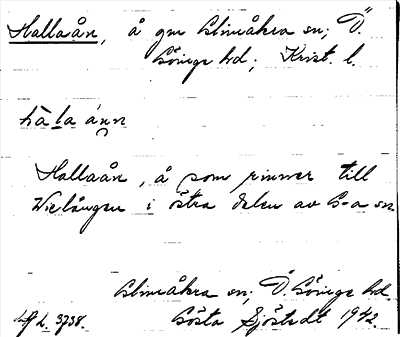 Hallaån, å gm Glimåkra sn; Ö.
Göinge hd; Krist. l.
hàla ánn
Hallaån, å som rinner till
Vielången i östra delen av G-a sn
Glimåkra sn; Ö Göinge hd.
Gösta Sjöstedt 1942.
3738.